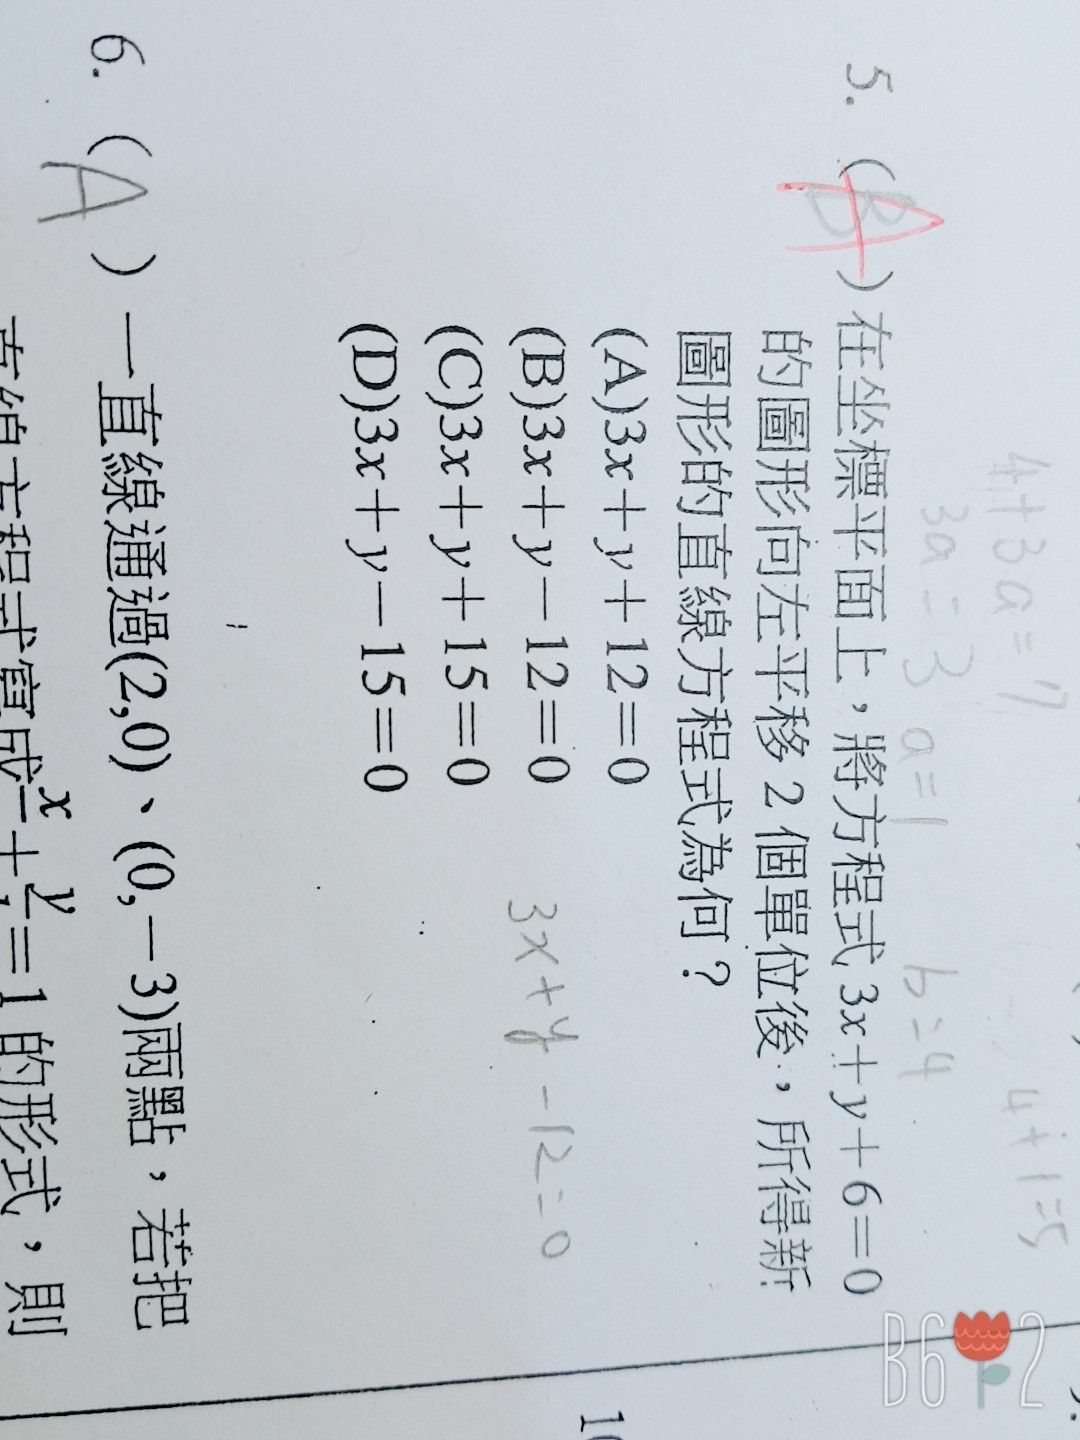 4+3a=7
3a=3 a=1 b=4 4+1=5
5. (A)在坐標平面上，將方程式 3x+y+6=0
的圖形向左平移 2 個單位後，所得新
圖形的直線方程式為何？
(A)3x+y+12=0
(B)3x+y-12=0
3x+y-12=0
(C)3x+y+15=0
(D)3x+y-15=0
6. (A)一直線通過(2,0)、(0,-3)兩點，若把
直線方程式寫成x/ + y/ =1 的形式，則
B6 2
10